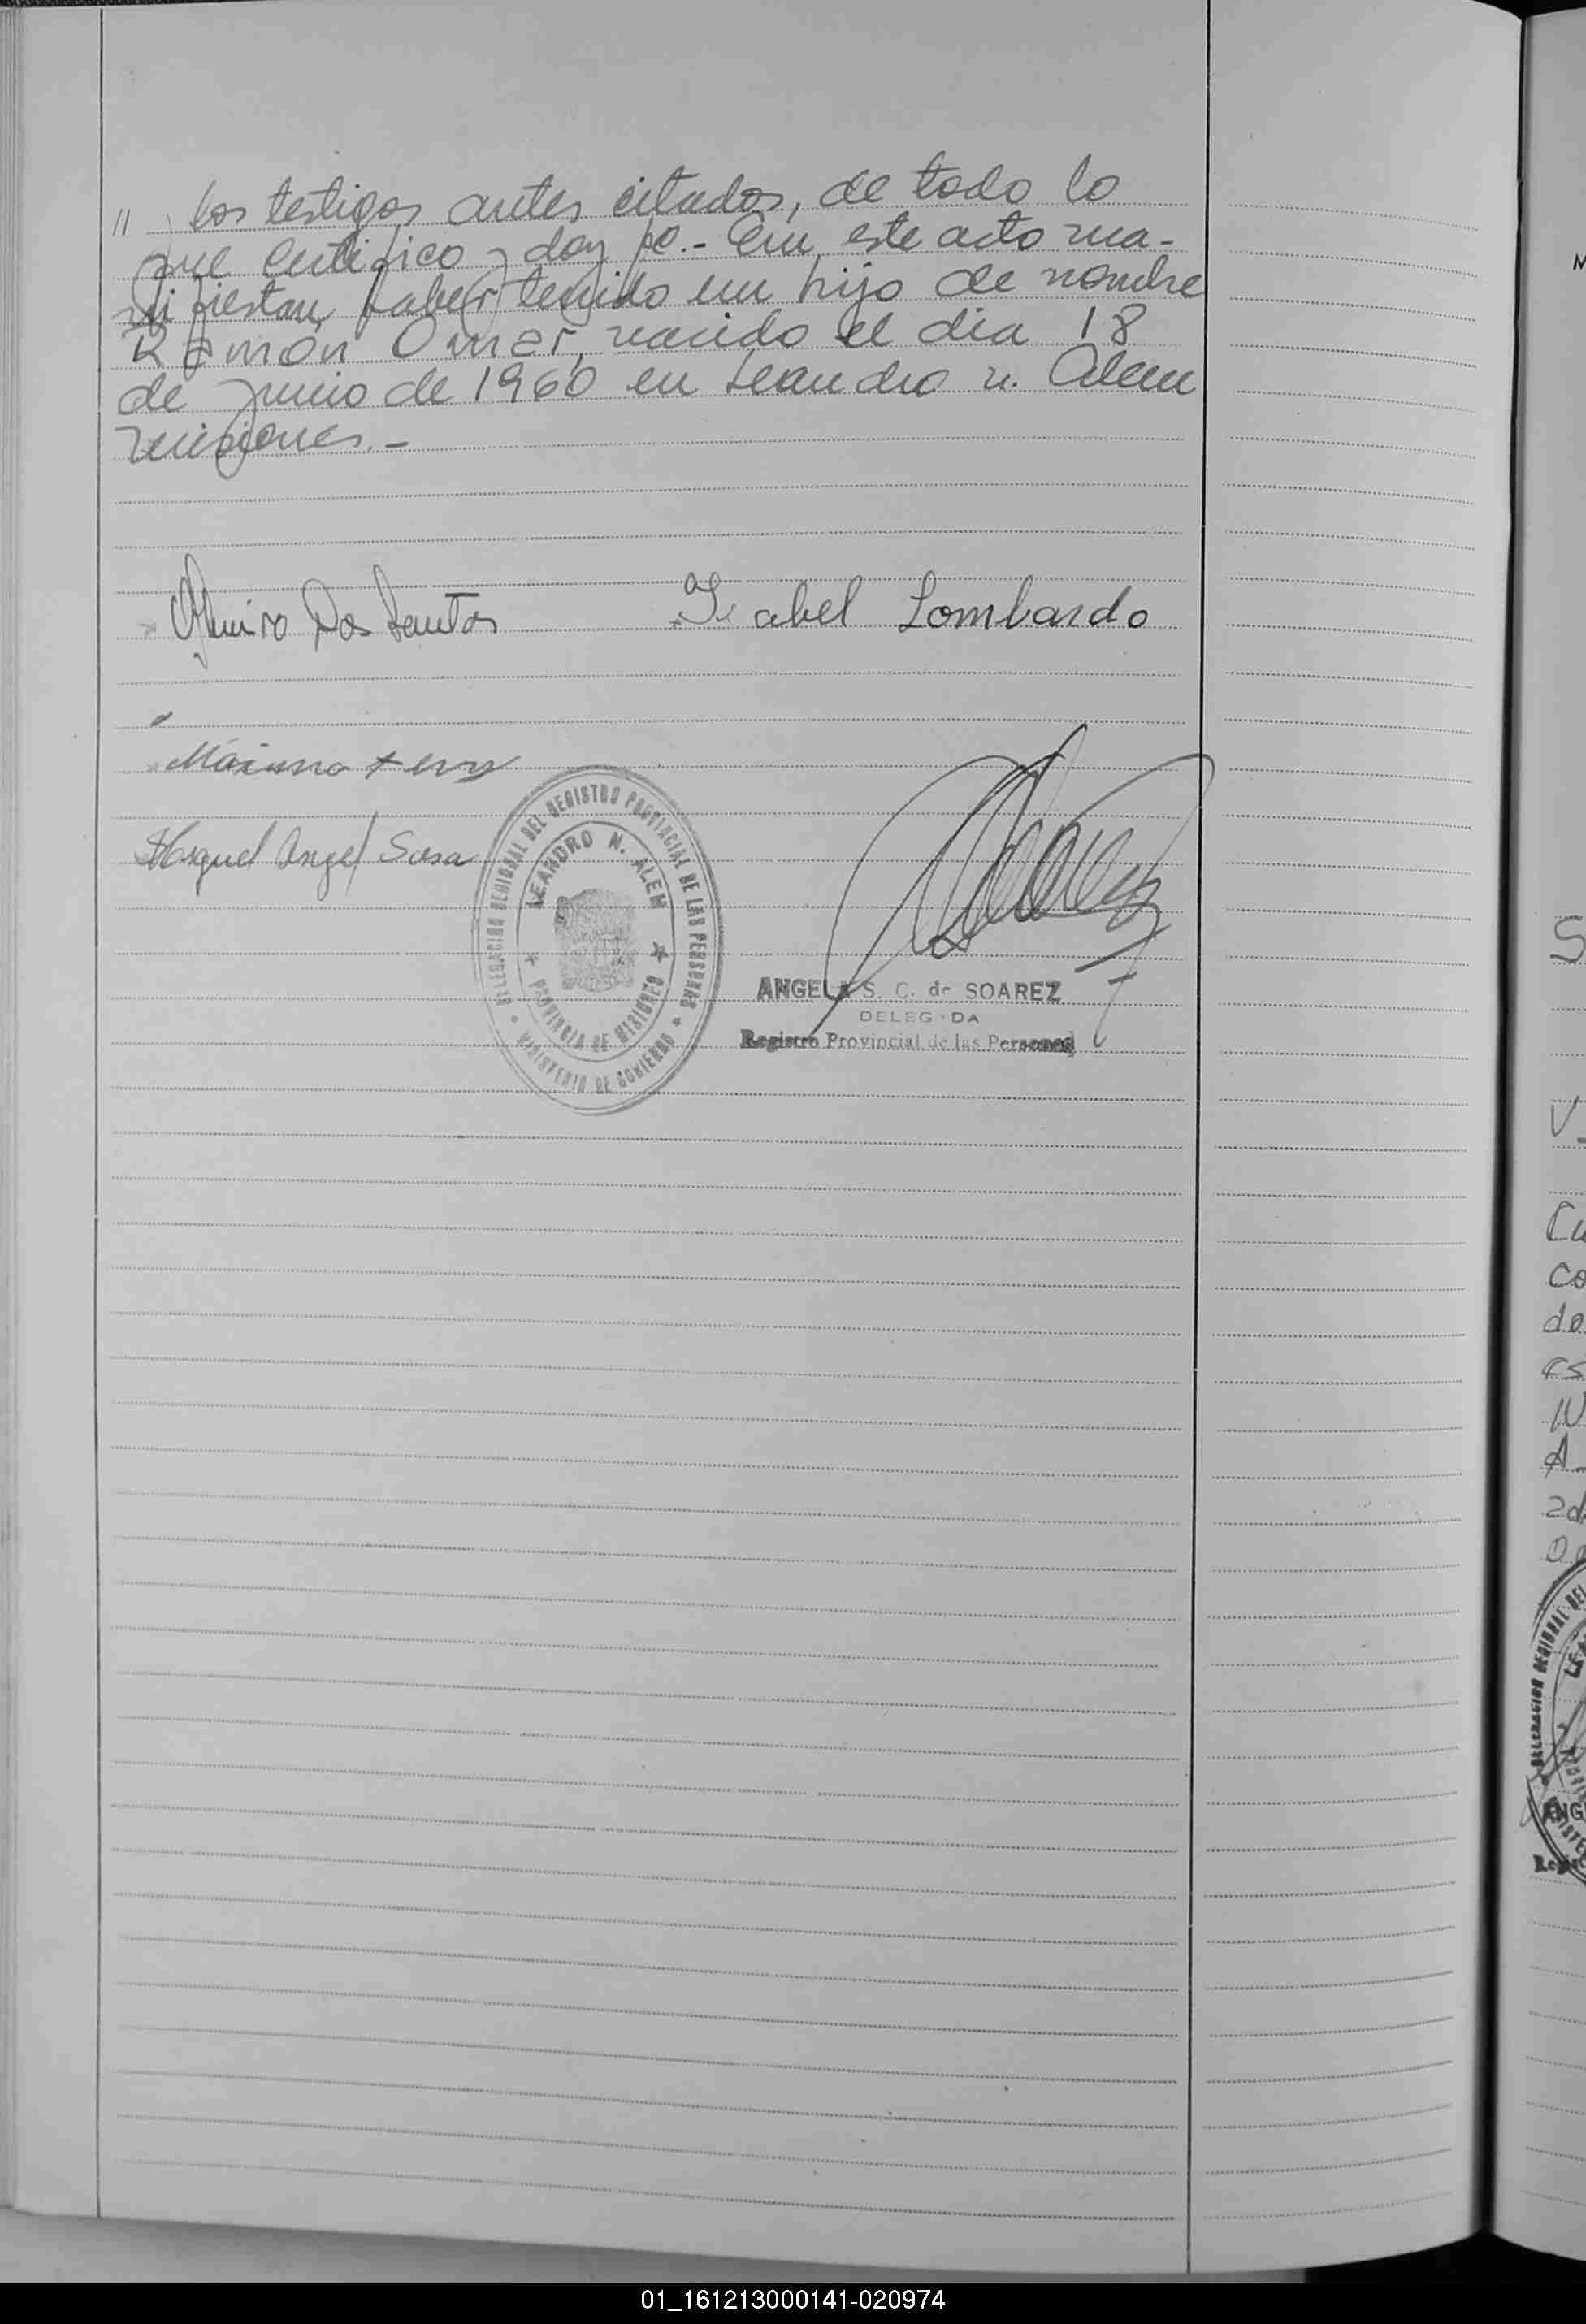 // los testigos antes citados, de todo lo
que certifico y doy fe.- En este acto ma-
nifiestan haber tenido un hijo de nombre
Ramón Omar, nacido el día 18
de junio de 1960 en Leandro N. Alem
Misiones.-
Almiro Dos Santos
Isabel Lombardo
Máximo
Miguel Angel Sosa
DELEGACION REGIONAL DEL REGISTRO PROVINCIAL DE LAS PERSONAS
MINISTERIO DE GOBIERNO
LEANDRO N. ALEM
PROVINCIA DE MISIONES
ANGELA S. C. de SOAREZ
DELEGADA
Registro Provincial de las Personas
S
V
Cu
co
do
es
A
DELEGACION REGIONAL DEL
ANG
01_161213000141-020974